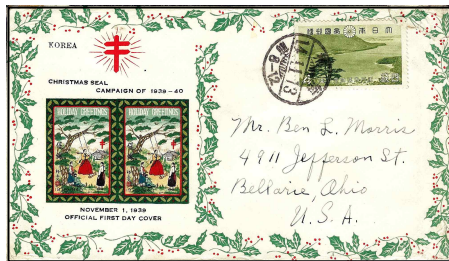 KOREA
CHRISTMAS SEAL
CAMPAIGN OF 1939-40
HOLIDAY GREETINGS
HOLIDAY GREETINGS
NOVEMBER 1, 1939
OFFICIAL FIRST DAY COVER
便郵國帝本日大
Mr. Ben L. Morris
4911 Jefferson St.
Bellaire, Ohio
U.S.A.